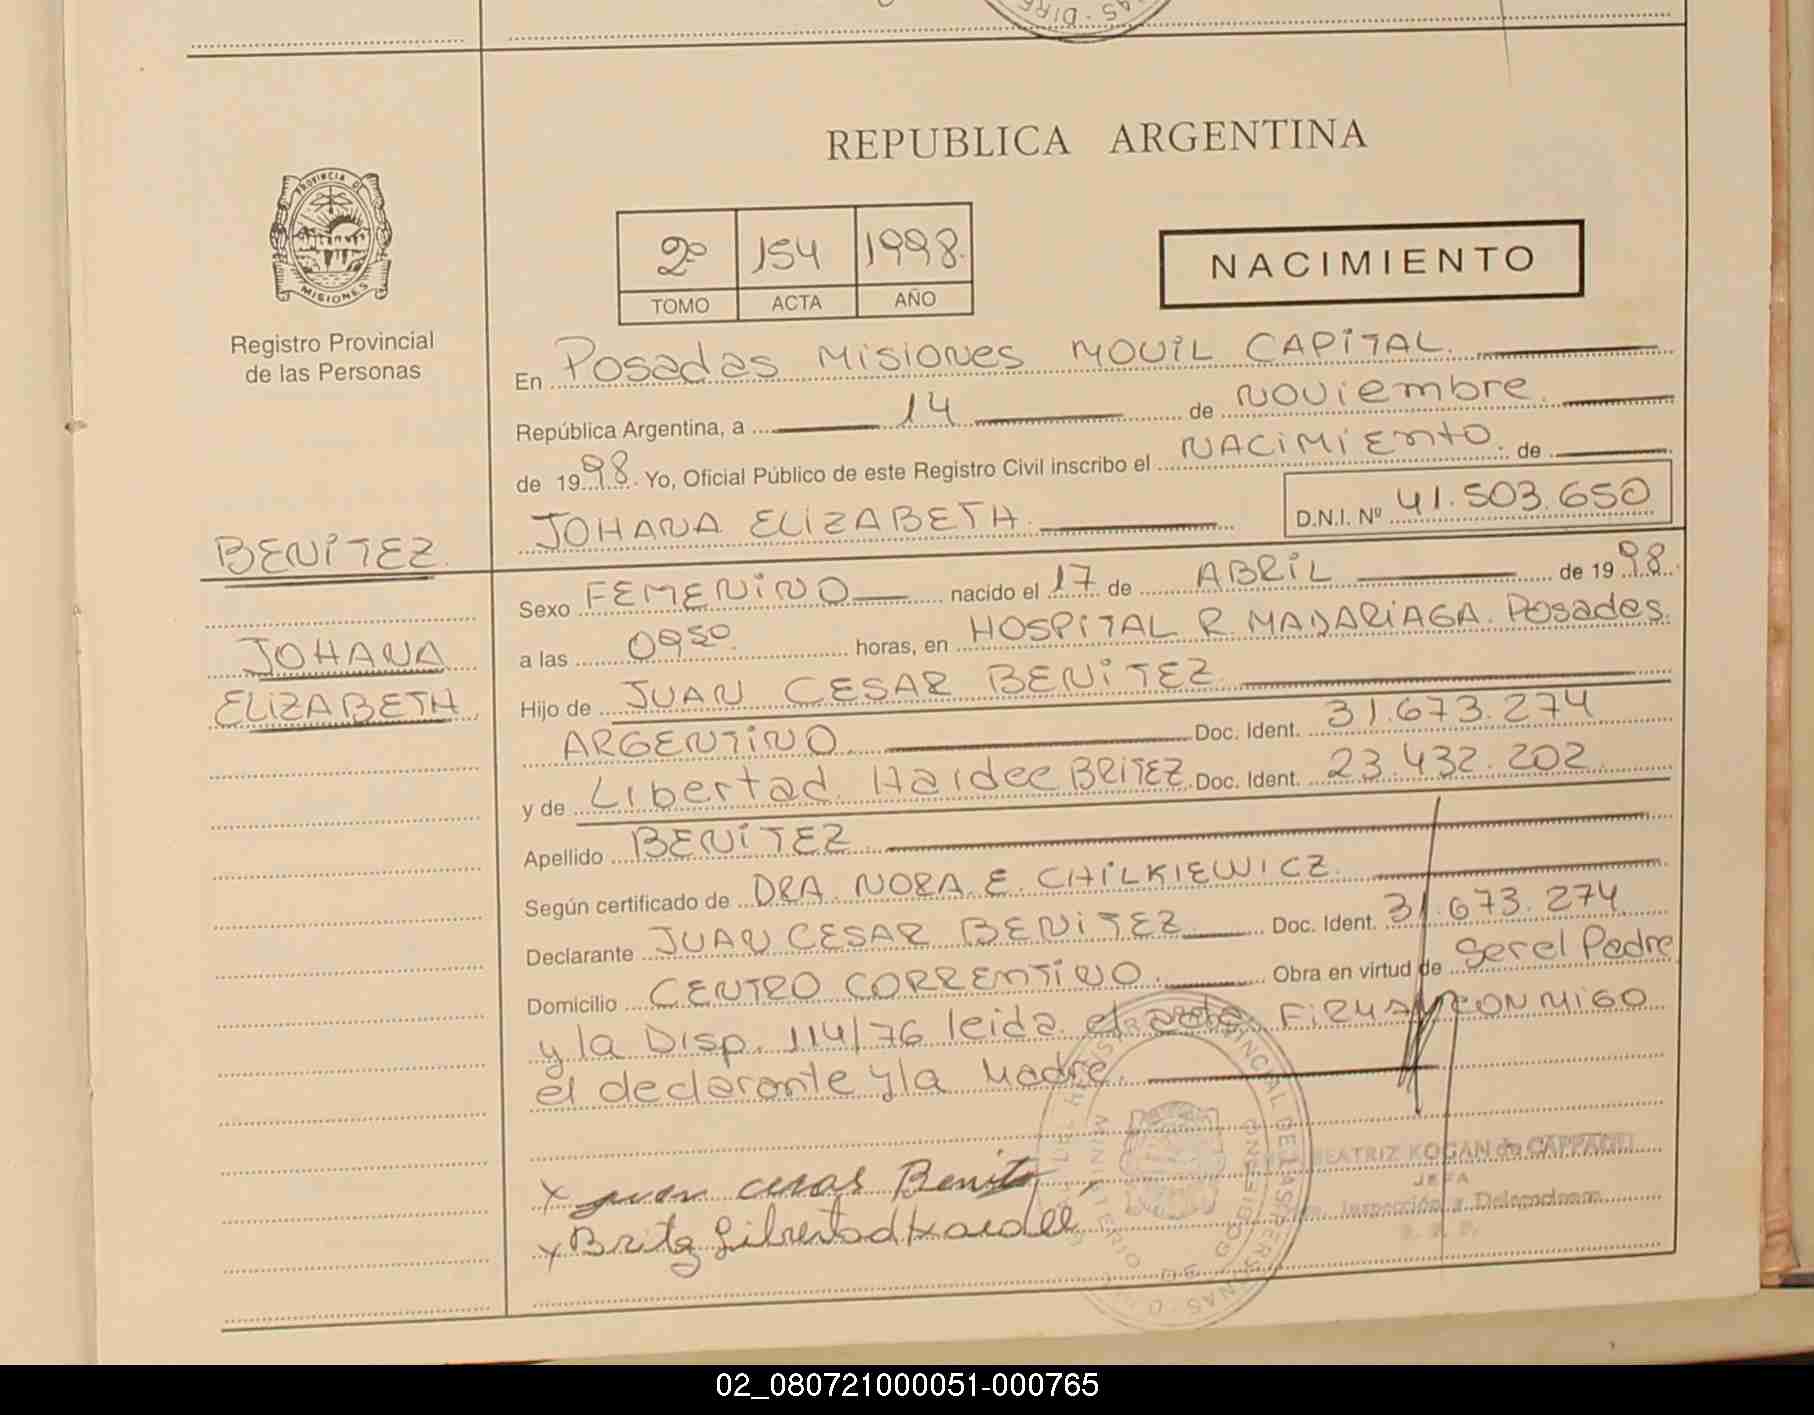 REPUBLICA ARGENTINA
PROVINCIA DE
MISIONES
Registro Provincial
de las Personas
2º 154 1998.
TOMO ACTA AÑO
NACIMIENTO
En Posadas Misiones MOVIL CAPITAL.
República Argentina, a 14 de noviembre.
de 1998. Yo, Oficial Público de este Registro Civil inscribo el NACIMIENTO. de
JOHANA ELIZABETH. D.N.I. Nº 41.503.650
BENITEZ.
JOHANA
ELIZABETH
Sexo FEMENINO nacido el 17 de ABRIL de 1998.
a las 0950. horas, en HOSPITAL R. MADARIAGA. Posadas.
Hijo de JUAN CESAR BENITEZ.
ARGENTINO Doc. Ident. 31.673.274
y de Libertad Haidee BRITEZ. Doc. Ident. 23.432.202.
Apellido BENITEZ.
Según certificado de DRA. NORA E. CHILKIEWICZ.
Declarante JUAN CESAR BENITEZ Doc. Ident. 31.673.274
Domicilio CENTRO CORRENTINO. Obra en virtud de ser el Padre
y la Disp. 114/76 leida el acta, FIRMAN CONMIGO
el declarante y la Madre.
x juan cesar Benitez
x Britez Libertad Haidee
BEATRIZ KOGAN de CAPPAGLI
JEFA
Inspección y Delegaciones
02_080721000051-000765